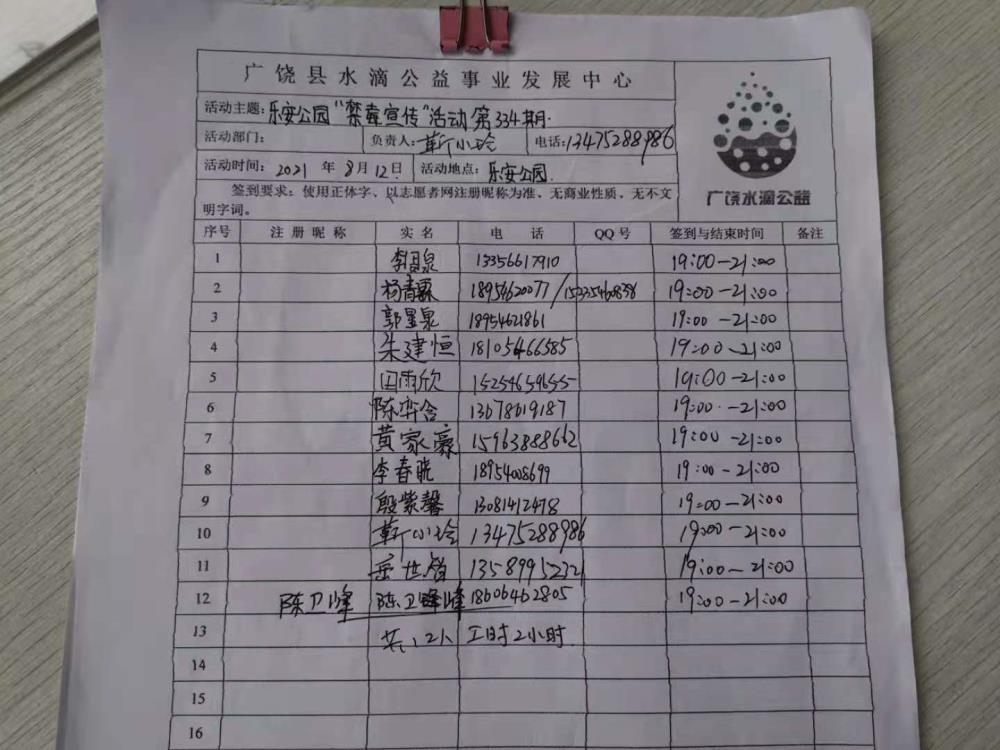 广饶县水滴公益事业发展中心
活动主题: 乐安公园"禁毒宣传"活动第334期.
活动部门: 负责人: 靳小玲 电话: 13475288986
活动时间: 2021 年 8 月 12 日 活动地点: 乐安公园.
签到要求: 使用正体字、以志愿者网注册昵称为准、无商业性质、无不文
明字词。
广饶水滴公益
序号 注册昵称 实名 电话 QQ号 签到与结束时间 备注
1 13356617910 19:00-21:00
2 杨青霖 18954620077/ 19:00-21:00
3 郭墨泉 18954621861 19:00-21:00
4 朱建恒 18105466585 19:00-21:00
5 田雨欣 15254659655 19:00-21:00
6 陈弈含 13678619187 19:00-21:00
7 黄家豪 15963888662 19:00-21:00
8 李春晓 18954008699 19:00-21:00
9 殷紫馨 13081412478 19:00-21:00
10 靳小玲 13475288986 19:00-21:00
11 岳世智 13589952321 19:00-21:00
12 陈卫峰 陈卫峰 18606462805 19:00-21:00
13 共12人 工时2小时
14
15
16